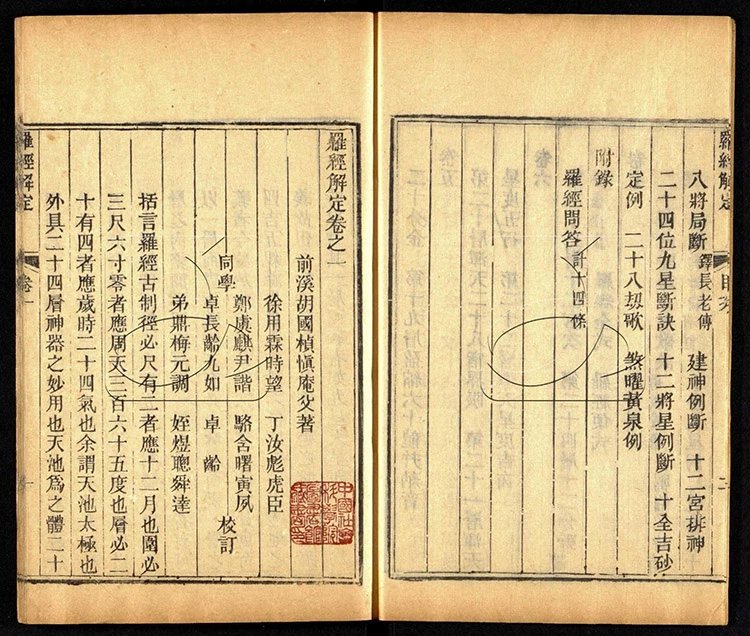 羅經解定 目次 二
八將局斷 鐸長老傳 建神例斷 十二宮排神
二十四位九星斷訣 十二將星例斷 十全吉砂
定例 二十八刼歌 煞曜黃泉例
附錄
羅經問答 計十四條
羅經解定卷之一
前溪胡國楨愼庵父著
徐用霖時望 丁汝彪虎臣
同學 鄭虞尹諧 駱舍曙寅夙 校訂
卓長齡九如 卓 齡
弟鼎梅元調 姪煜聰舜達
括言羅經古制徑必尺有二者應十二月也圍必
三尺六寸零者應周天三百六十五度也層必二
十有四者應歲時二十四氣也余謂天池太極也
外具二十四層神器之妙用也天池爲之體二十
羅經解定 卷一